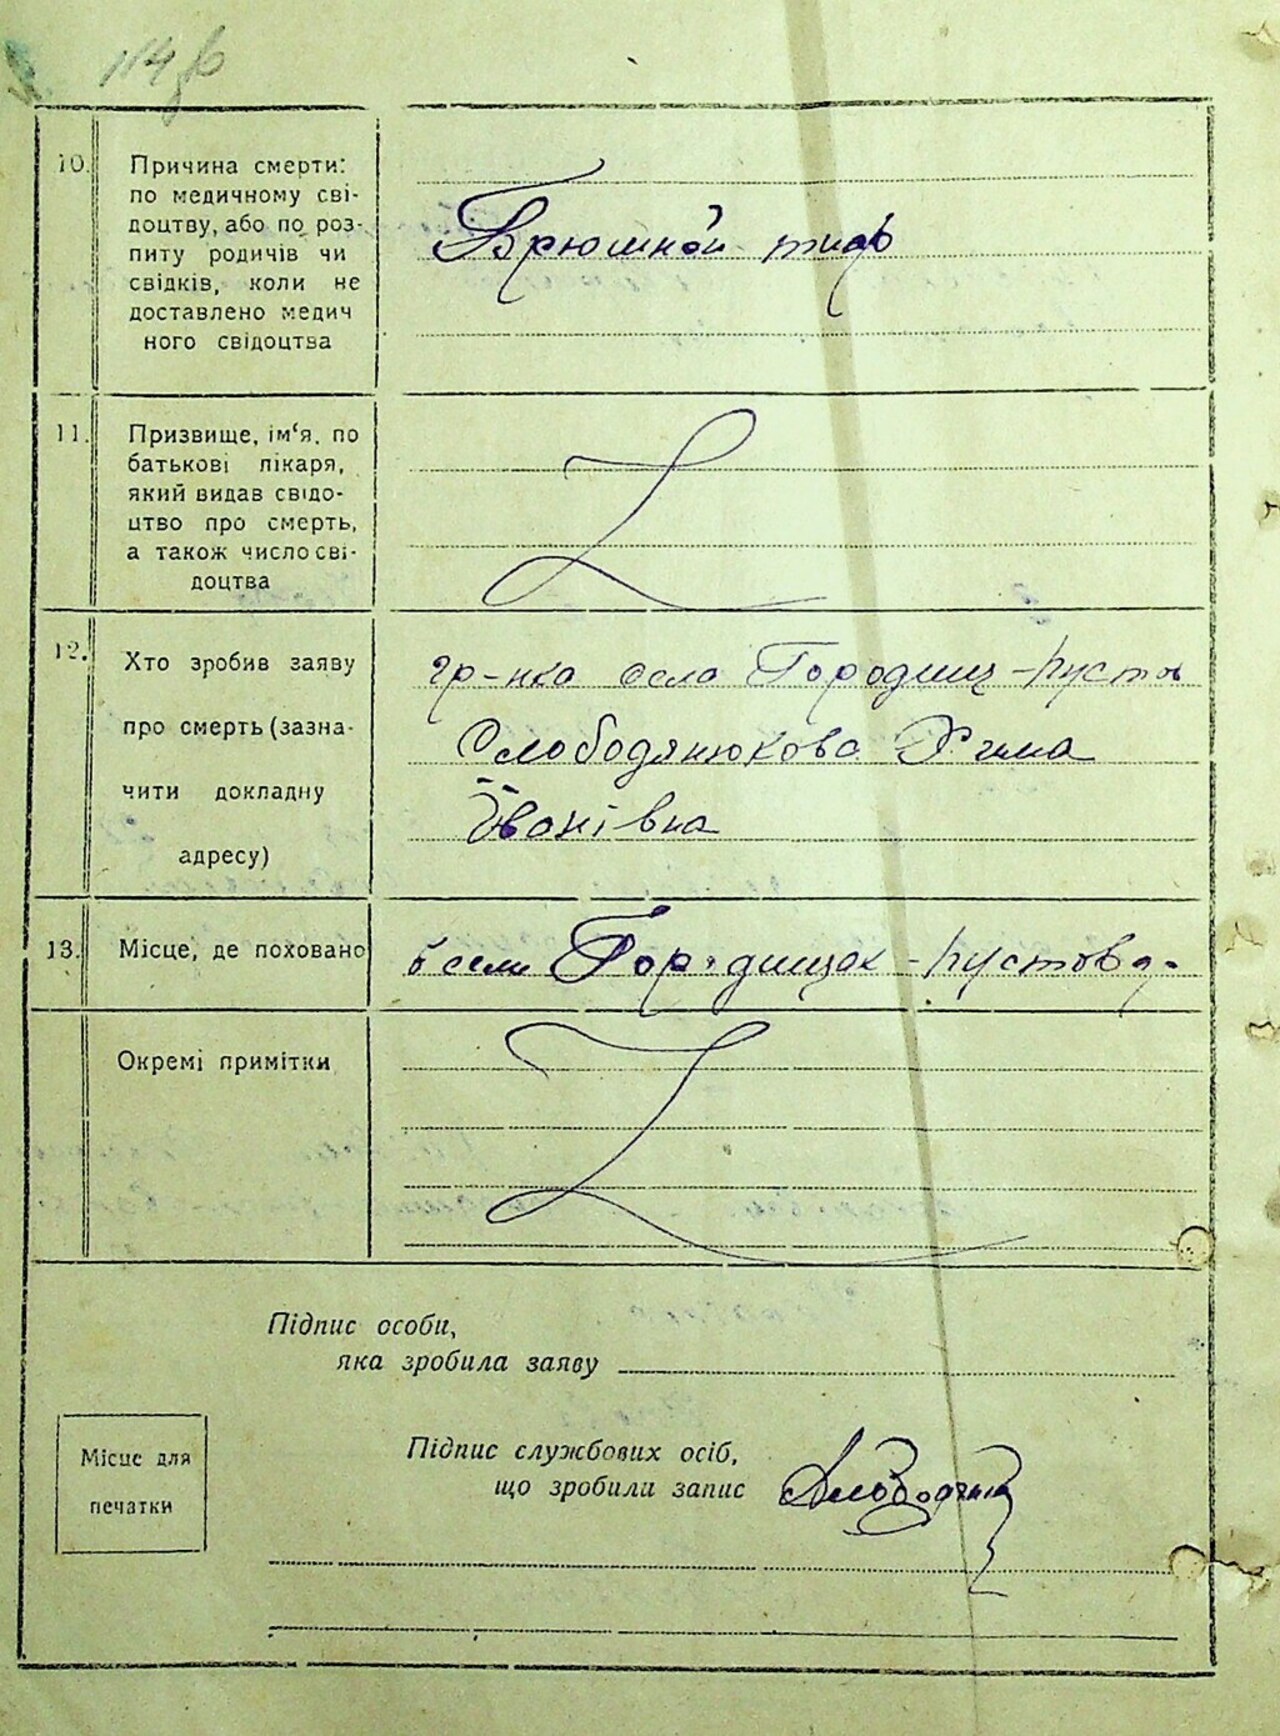 10. Причина смерти:
по медичному сві-
доцтву, або по роз-
питу родичів чи
свідків, коли не
доставлено медич
ного свідоцтва
Брюшной тиф
11. Призвище, ім‘я, по
батькові лікаря,
який видав свідо-
цтво про смерть,
а також число сві-
доцтва
12. Хто зробив заяву
про смерть (зазна-
чити докладну
адресу)
гр-нка села Городищ-пустов
Слободянюкова Хима
Іванівна
13. Місце, де поховано
в селі Городищах-пустов
Окремі примітки
Підпис особи,
яка зробила заяву
Місце для
печатки
Підпис службових осіб,
що зробили запис